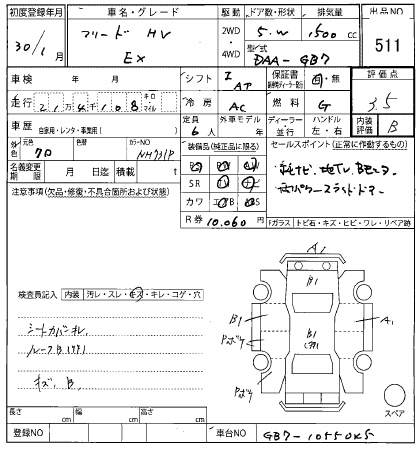 初度登録年月 車名・グレード 駆動 ドア数・形状 排気量 出品NO
30/1月 フリード HV EX 2WD 4WD 5.W 1500cc 511
型式 DAA-GB7
車検 年 月 シフト IAT 保証書 有・無 評価点 3.5
走行 21万4千108 キロ・マイル 冷房 AC 燃料 G
車歴 自家用・レンタ・事業用( ) 定員 6人 外車モデル 年 ディーラー 並行 ハンドル 左・右 内装評価 B
外色 元色 クロ 色替 カラーNO NH731P
装備品(純正品に限る) セールスポイント(正常に作動するもの)
名義変更期限 月 日迄 積載 t
純ナビ、地TV、Bモニタ
SR
カワ
R券 10,060円
注意事項(欠品・修復・不具合箇所および状態)
Fガラス トビ石・キズ・ヒビ・ワレ・リペア跡
A1
B1
B1 B1 A1
検査員記入 内装 汚レ・スレ・キズ・キレ・コゲ・穴
シートカバーキレ
ルーフB
キズ、B
スペア
長さ cm 幅 cm 高さ cm
登録NO 車台NO GB7-10550K5